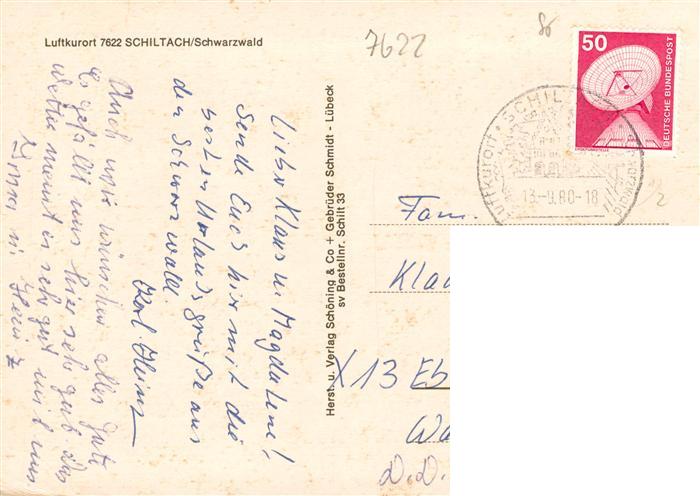 Luftkurort 7622 SCHILTACH/Schwarzwald
7622
86
50
DEUTSCHE BUNDESPOST
LUFTKURORT · SCHILT
Schwarzwald
13.-9.80-18
2
Lieber Klaus u. Magdalene!
Sende Euch hir mit die
besten Urlaubsgrüße aus
den Schwarzwald.
Karl Heinz
Auch wir wünschen alles Gute
Es gefällt uns hier sehr gut. Das
Wetter meint es sehr gut mit uns
u. Heinz
Herst. u. Verlag Schöning & Co + Gebrüder Schmidt - Lübeck
sv Bestellnr. Schilt 33
Fam.
Kla
X 13 Eb
Wa
D.D.